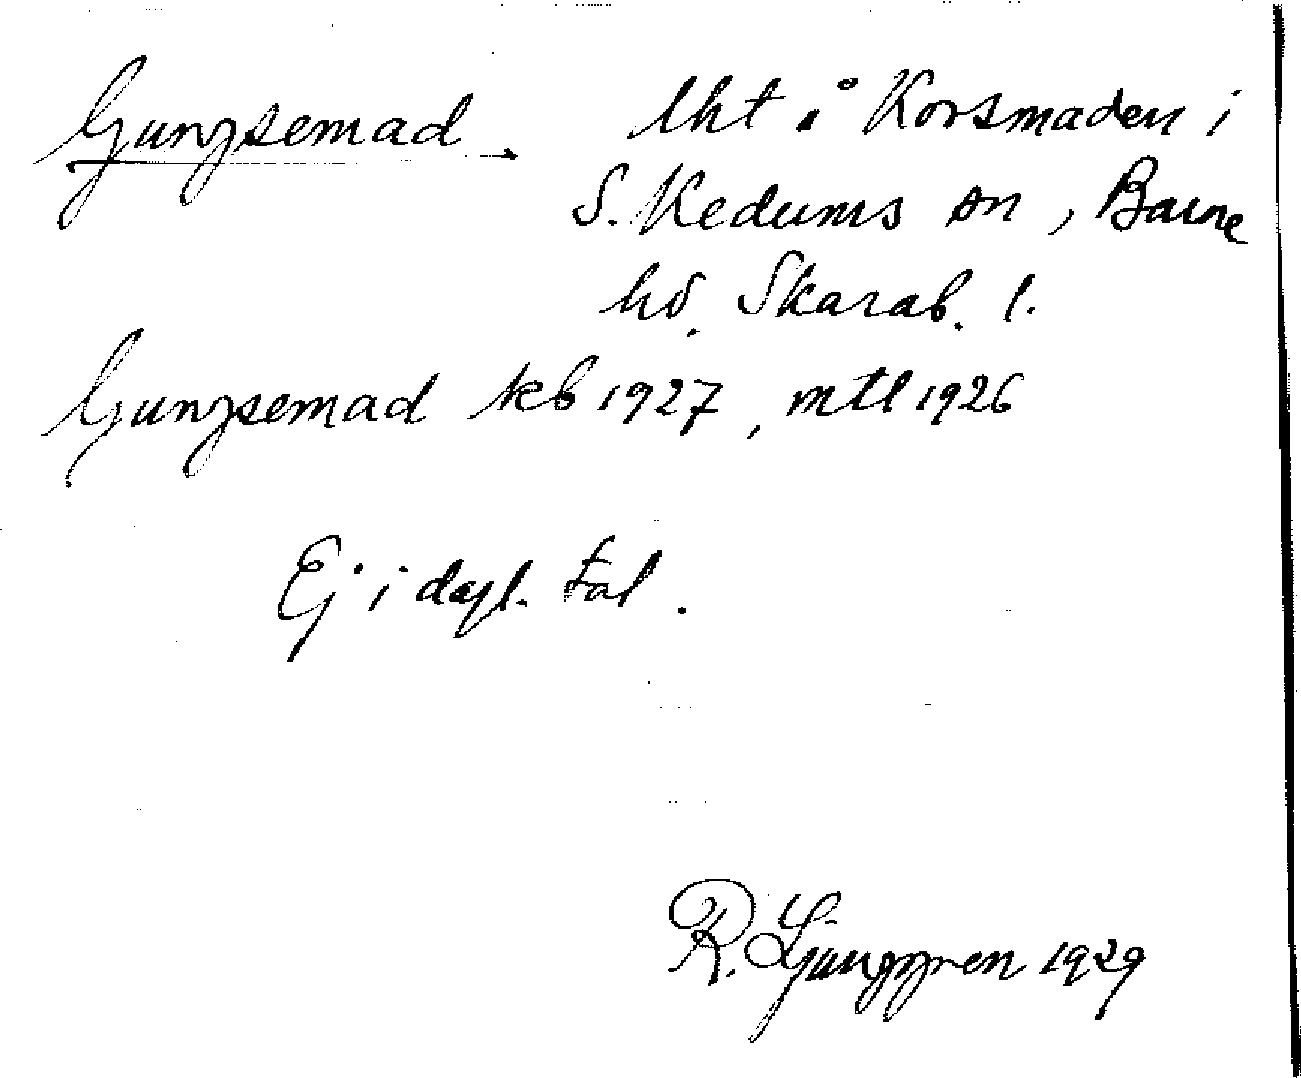 Gungsemad lht å Korsmaden i
S. Kedums sn, Barne
hd. Skarab. l.
Gungsemad kb 1927, mtl 1926
Ej i dagl. tal.
R. Ljunggren 1929